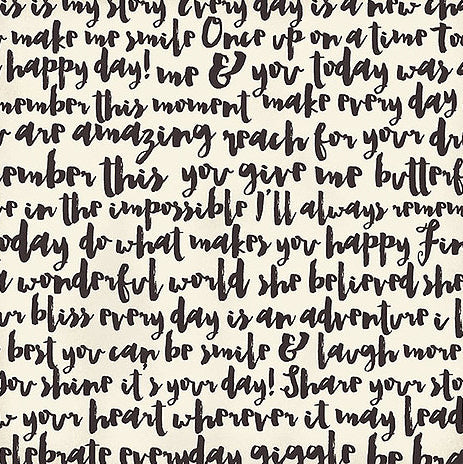 is is my story every day is a new cha
make me smile Once up on a time to
happy day! me & you today was a
member this moment make every day
are amazing reach for your dr
ember this you give me butterf
ve in the impossible I'll always remem
oday do what makes you happy Fin
a wonderful world she believed she
ur bliss every day is an adventure i l
best you can be smile & laugh more
you shine it's your day! Share your sto
w your heart wherever it may lead
elebrate everyday giggle be bra